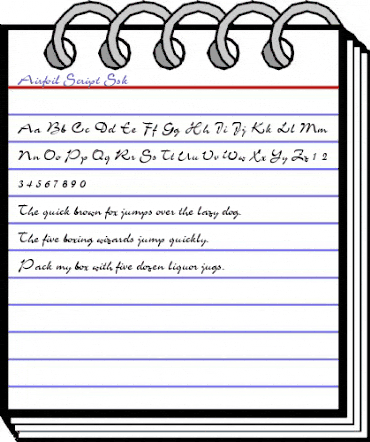 Airfoil Script Ssk
Aa Bb Cc Dd Ee Ff Gg Hh Ii Jj Kk Ll Mm
Nn Oo Pp Qq Rr Ss Tt Uu Vv Ww Xx Yy Zz 1 2
3 4 5 6 7 8 9 0
The quick brown fox jumps over the lazy dog.
The five boxing wizards jump quickly.
Pack my box with five dozen liquor jugs.